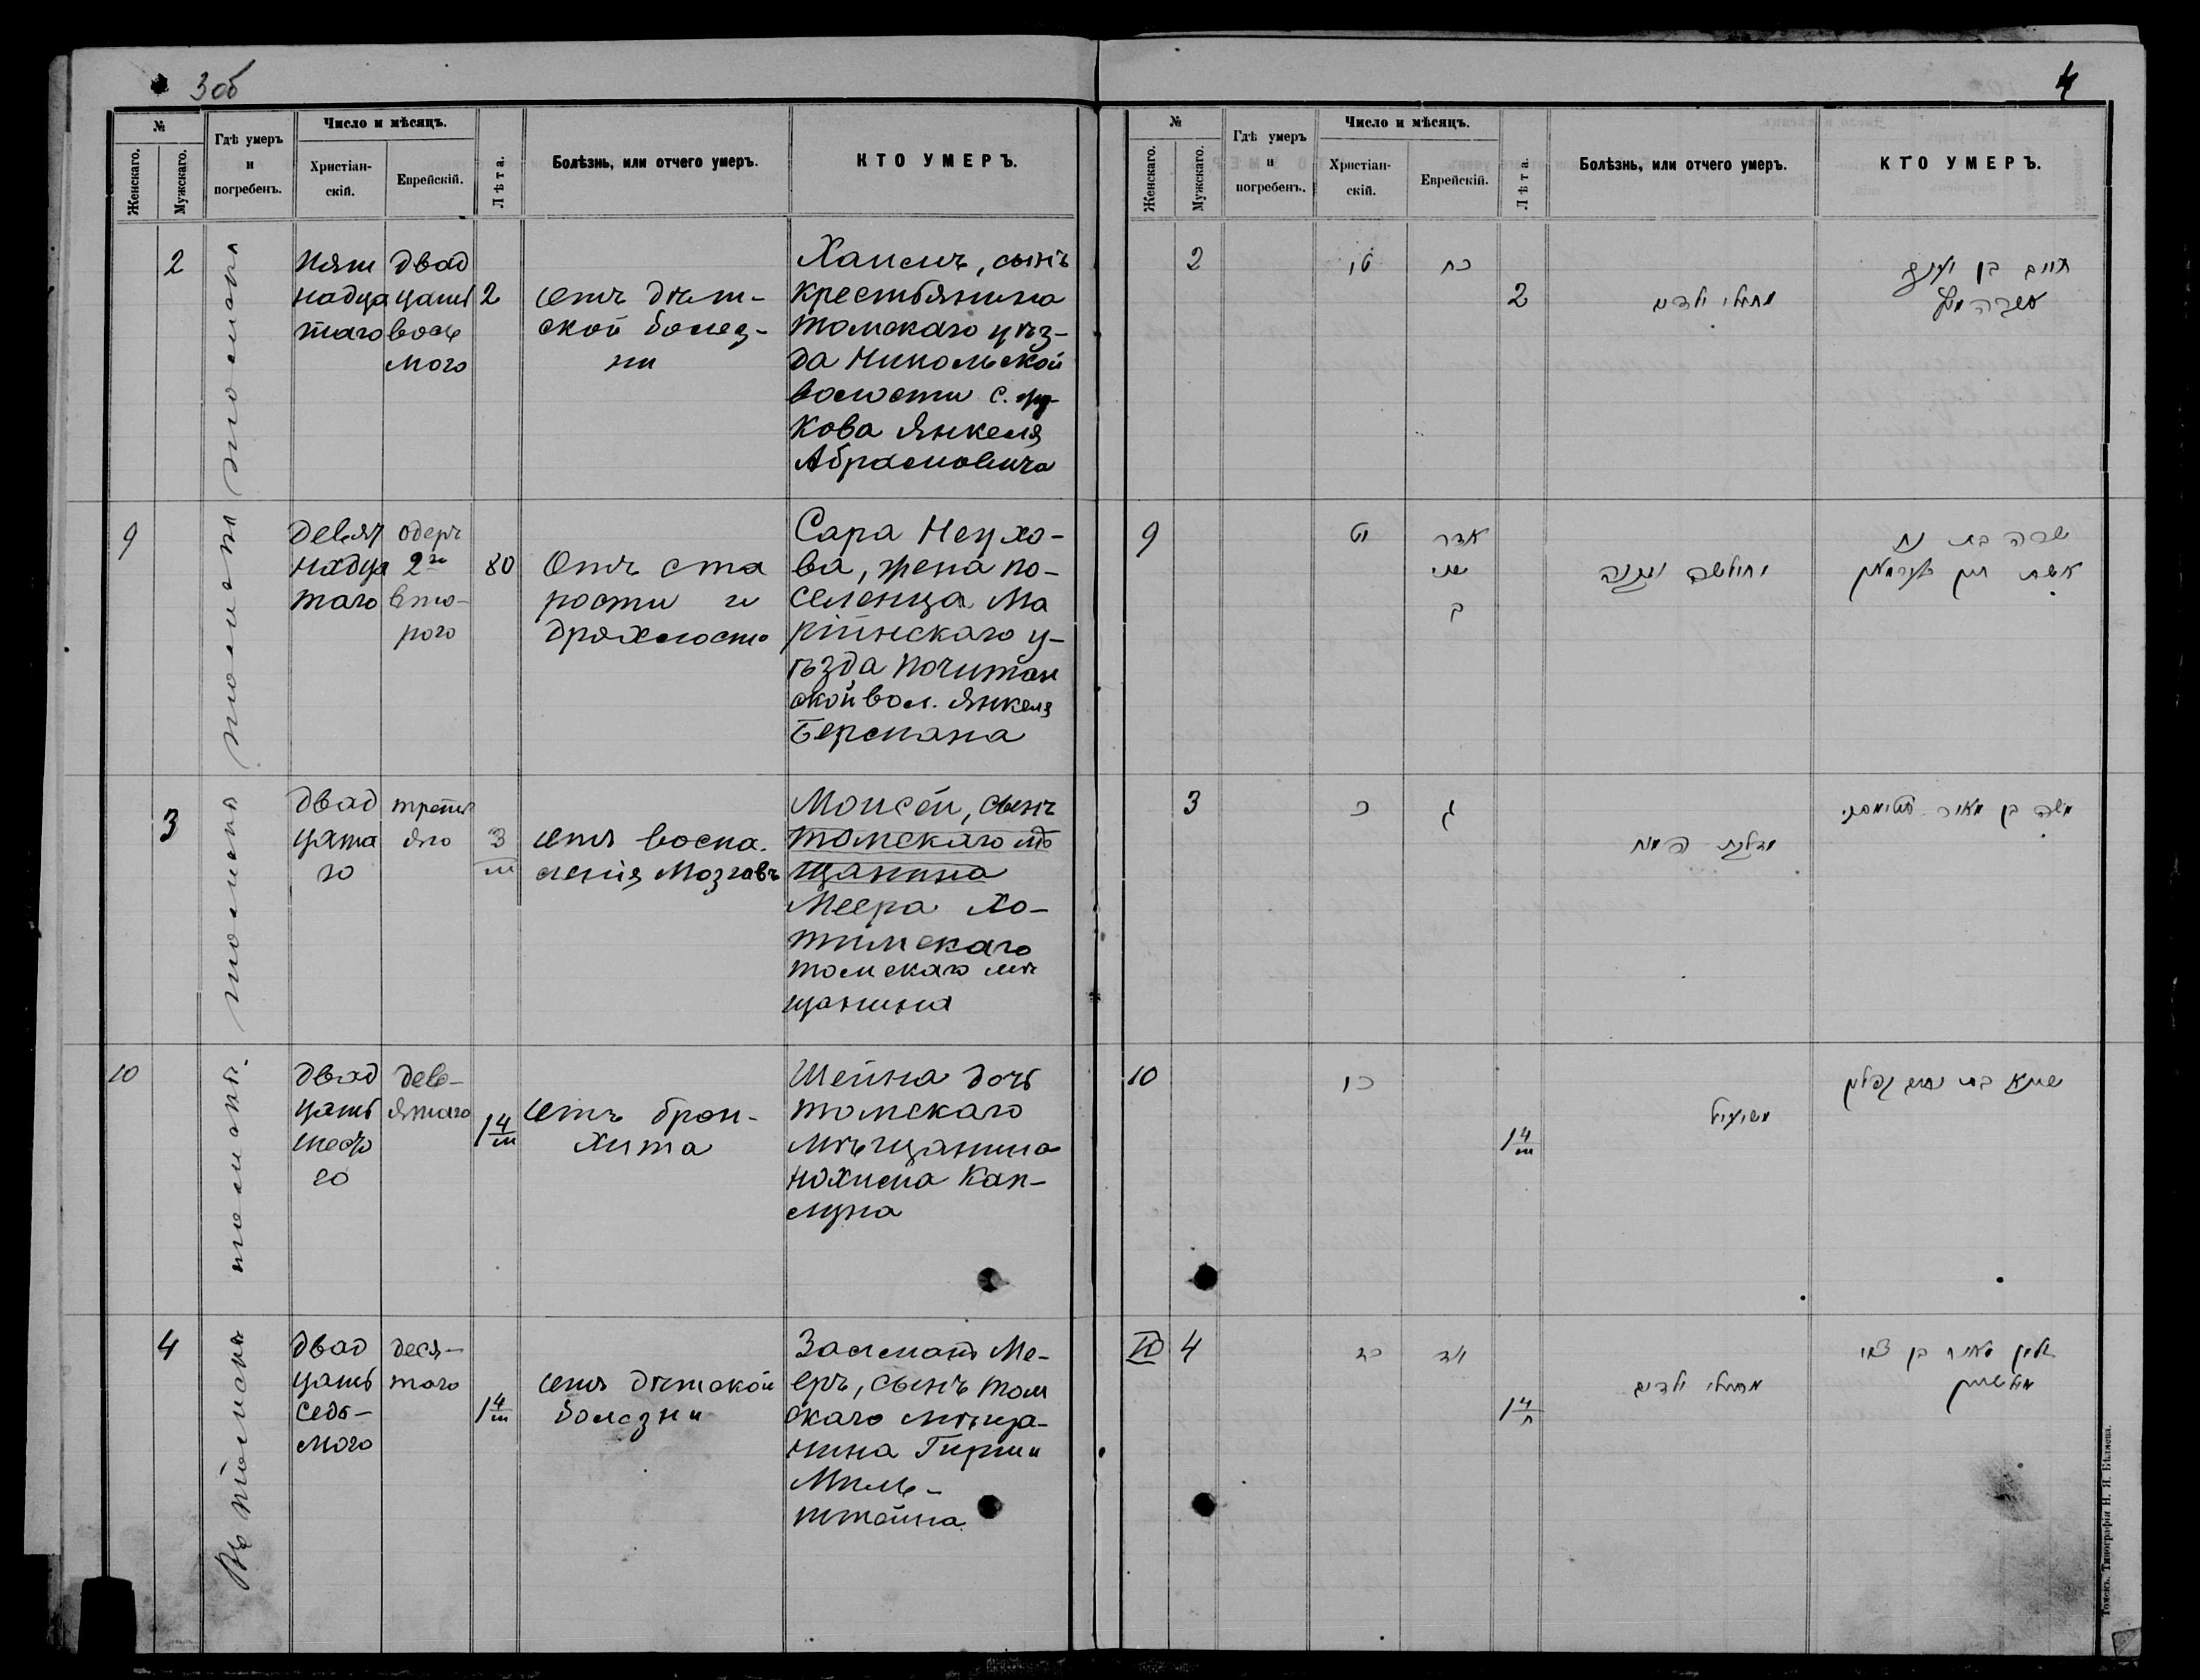 3 об
№
Женскаго.
Мужскаго.
Гдѣ умеръ
и
погребенъ.
Число и мѣсяцъ.
Христіан-
скій.
Еврейскій.
Лѣта.
Болѣзнь, или отчего умеръ.
КТО УМЕРЪ.
2
Пят
надца
таго
двад
цать
вось
мого
2
отъ дѣт-
ской болез-
ни
Хаимъ, сынъ
крестьянина
томскаго уѣз-
да Никольской
волости с.
кова Янкеля
Абрамовича
9
томскъ
девят
надца
таго
адеръ
2го
вто-
рого
80
Отъ ста
рости и
дряхлости
Сара Неухо-
ва, жена по-
селенца Ма
ріинскаго у-
ѣзда Почитан
ской вол. Янкеля
Бермана
3
двад
цата
го
треть
яго
3
м
отъ воспа.
ленія мозговъ
Моисей, сынъ
томскаго мѣ
щанина
Меера Хо-
тимскаго
томскаго мѣ
щанина
10
двад
цать
шесто
го
дев-
ятаго
1 4/м
отъ брон-
хита
Шейна дочь
томскаго
мѣщанина
Нохима Кап-
луна
4
Въ томскѣ
двад
цать
седь-
мого
деся-
таго
1 4/м
отъ дѣтской
болезни
Залманъ Ме-
еръ, сынъ том
скаго мѣща-
нина Гирши
Миль-
штейна
4
№
Женскаго.
Мужскаго.
Гдѣ умеръ
и
погребенъ.
Число и мѣсяцъ.
Христіан-
скій.
Еврейскій.
Лѣта.
Болѣзнь, или отчего умеръ.
КТО УМЕРЪ.
2
טו
כח
2
מחולי ילדים
חיים בן יעקב
9
יט
אדר
שני
ב
שרה בת נח
אשת
3
כ
ג
מדלקת המוח
משה בן מאיר
10
כו
1 4/м
משיעול
שיינא בת נחום קפלון
4
כז
יוד
1 4/ח
מחולי ילדים
זלמן מאיר בן צבי
מילשטיין
Томскъ. Типографія Н. И. Бѣляева.